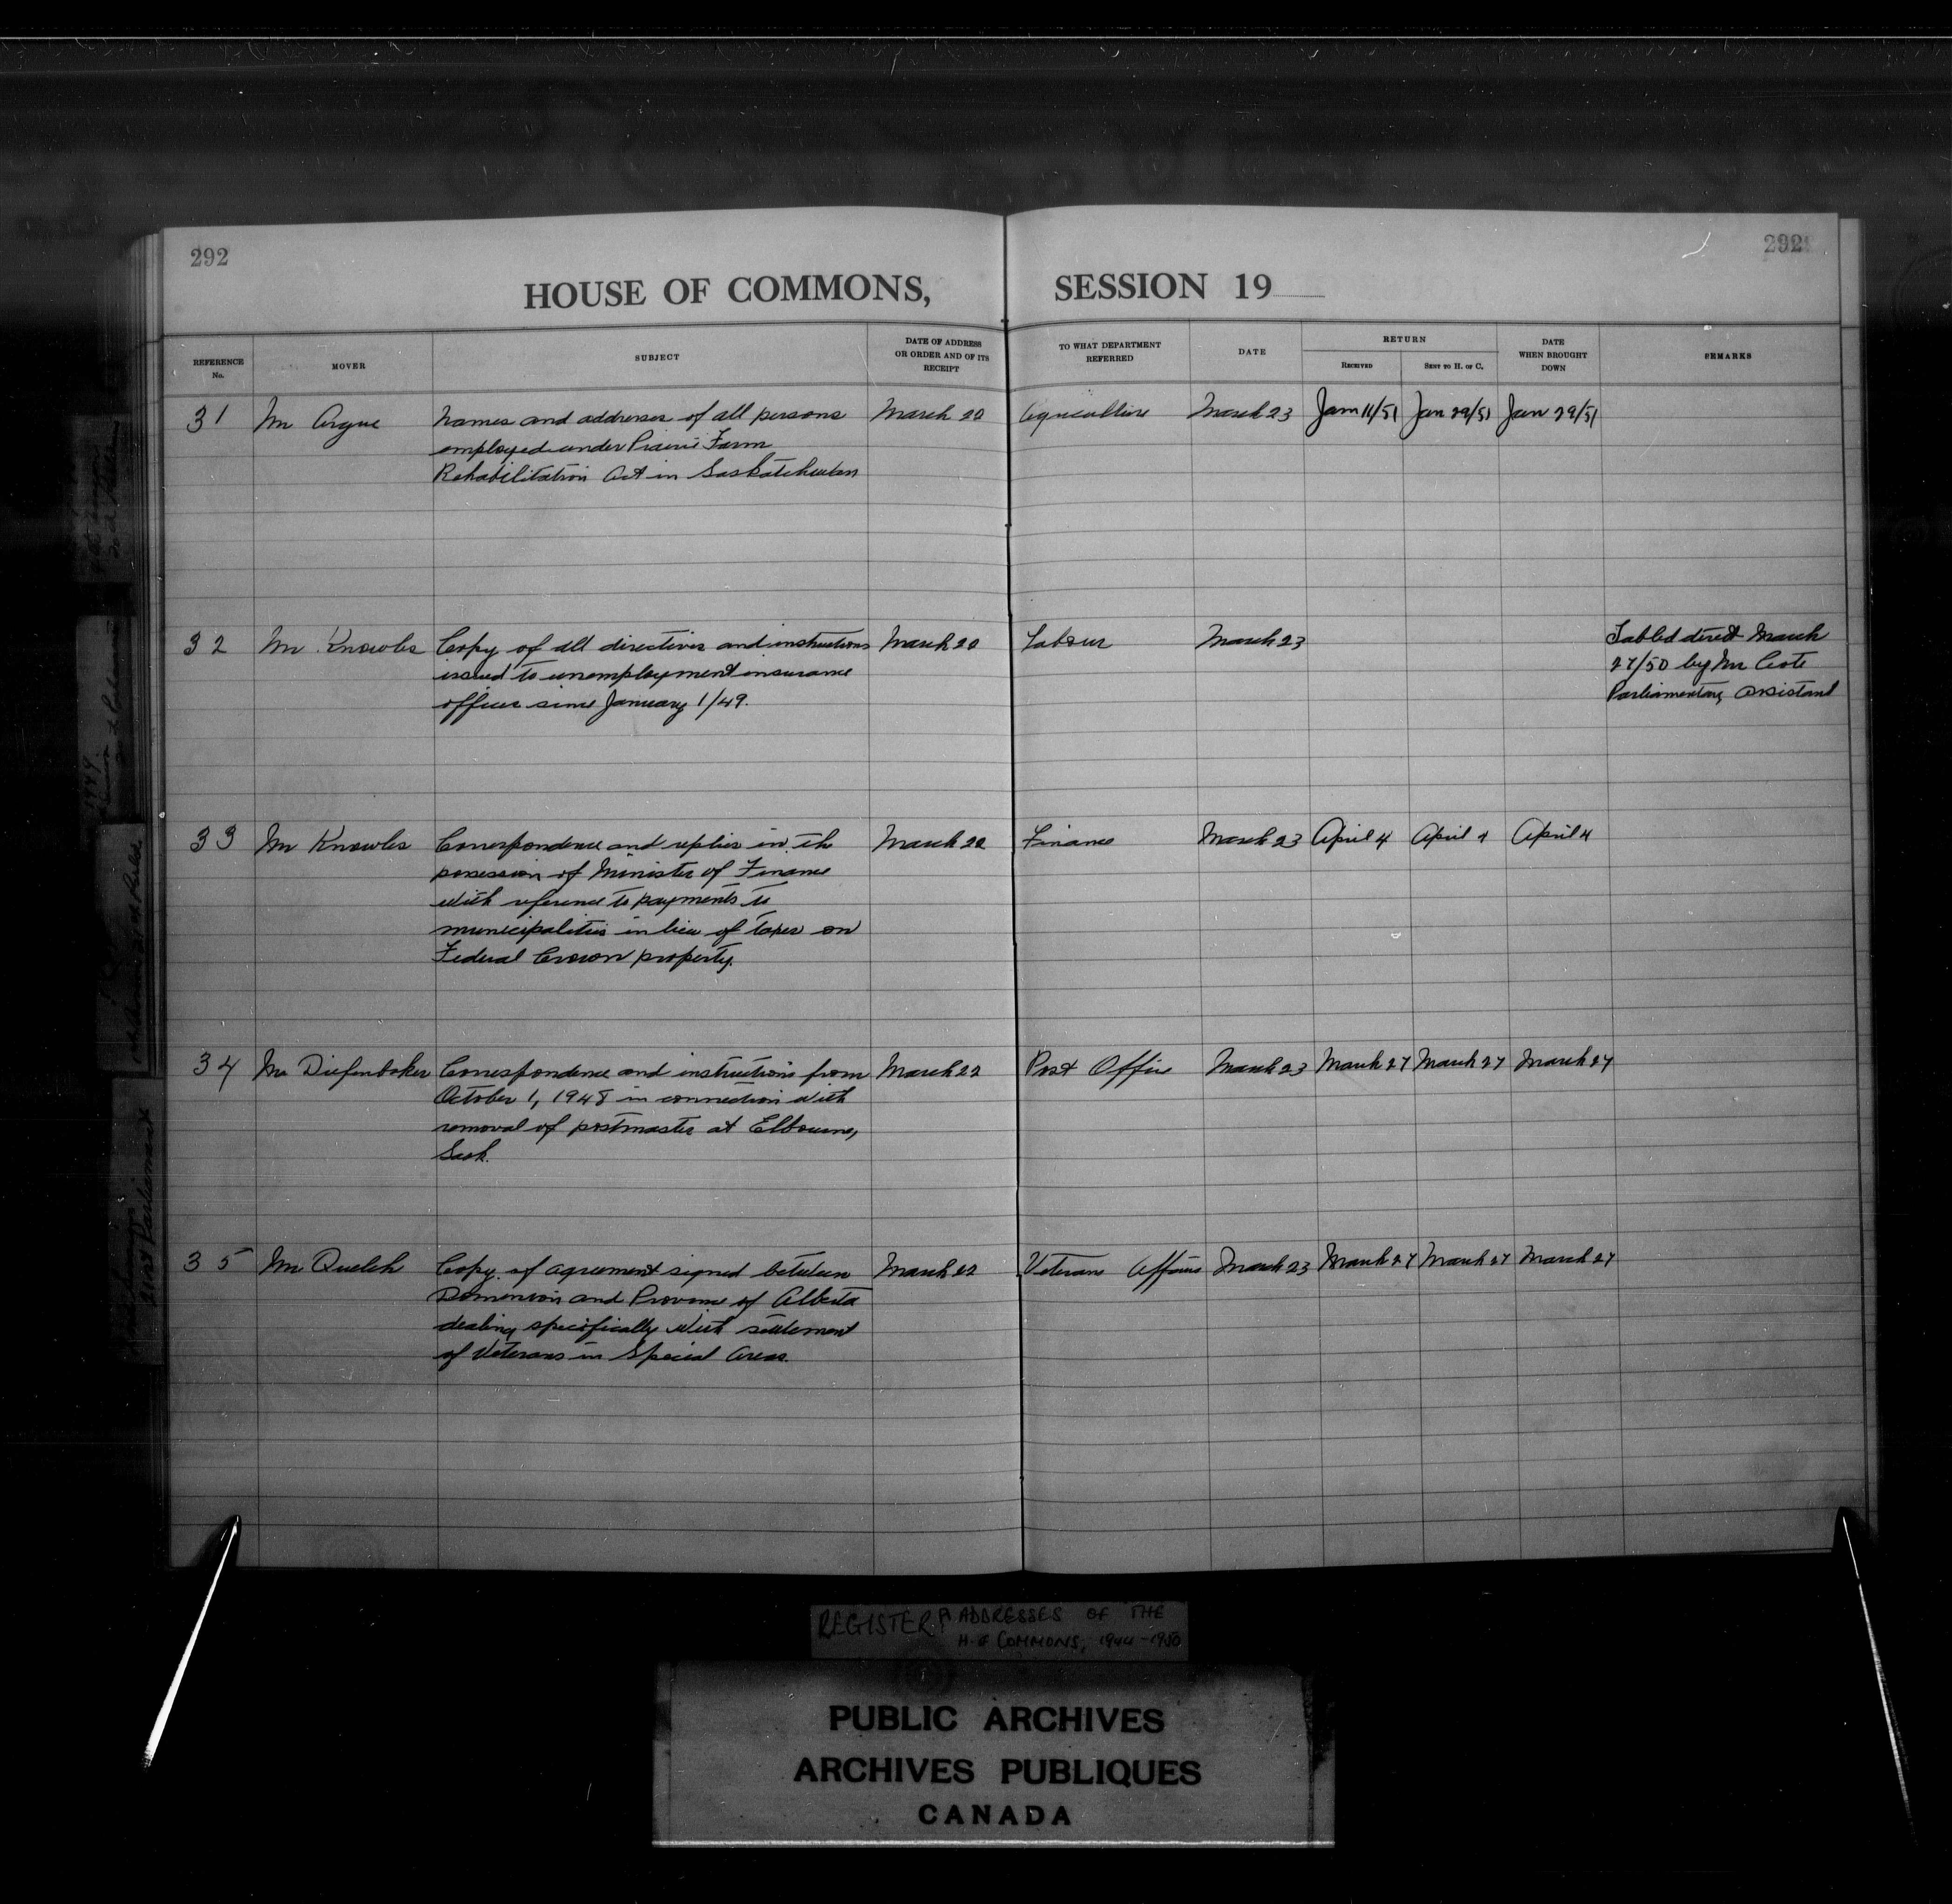 292
292
HOUSE OF COMMONS, SESSION 19
REFERENCE No.
MOVER
SUBJECT
DATE OF ADDRESS OR ORDER AND OF ITS RECEIPT
TO WHAT DEPARTMENT REFERRED
DATE
RETURN
RECEIVED
SENT TO H. OF C.
DATE WHEN BROUGHT DOWN
REMARKS
31 Mr Argue Names and addresses of all persons March 20 Agriculture March 23 Jan 11/51 Jan 29/51 Jan 29/51
employed under Prairie Farm
Rehabilitation Act in Saskatchewan
32 Mr Knowles Copy of all directives and instructions March 20 Labour March 23 Tabled direct March
issued to unemployment insurance 27/50 by Mr Cote
offices since January 1/49. Parliamentary Assistant
33 Mr Knowles Correspondence and replies in the March 22 Finance March 23 April 4 April 4 April 4
possession of Minister of Finance
with reference to payments to
municipalities in lieu of taxes on
Federal Crown property.
34 Mr Diefenbaker Correspondence and instructions from March 22 Post Office March 23 March 27 March 27 March 27
October 1, 1948 in connection with
removal of postmaster at Elbourne,
Sask.
35 Mr Quelch Copy of agreement signed between March 22 Veterans Affairs March 23 March 27 March 27 March 27
Dominion and Province of Alberta
dealing specifically with settlement
of Veterans in Special Areas.
REGISTER ADDRESSES OF THE
H. of COMMONS, 1944-1950
PUBLIC ARCHIVES
ARCHIVES PUBLIQUES
CANADA